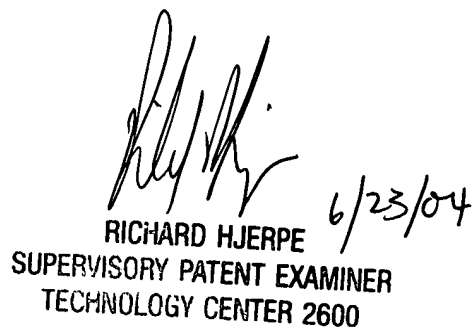 6/23/04
RICHARD HJERPE
SUPERVISORY PATENT EXAMINER
TECHNOLOGY CENTER 2600